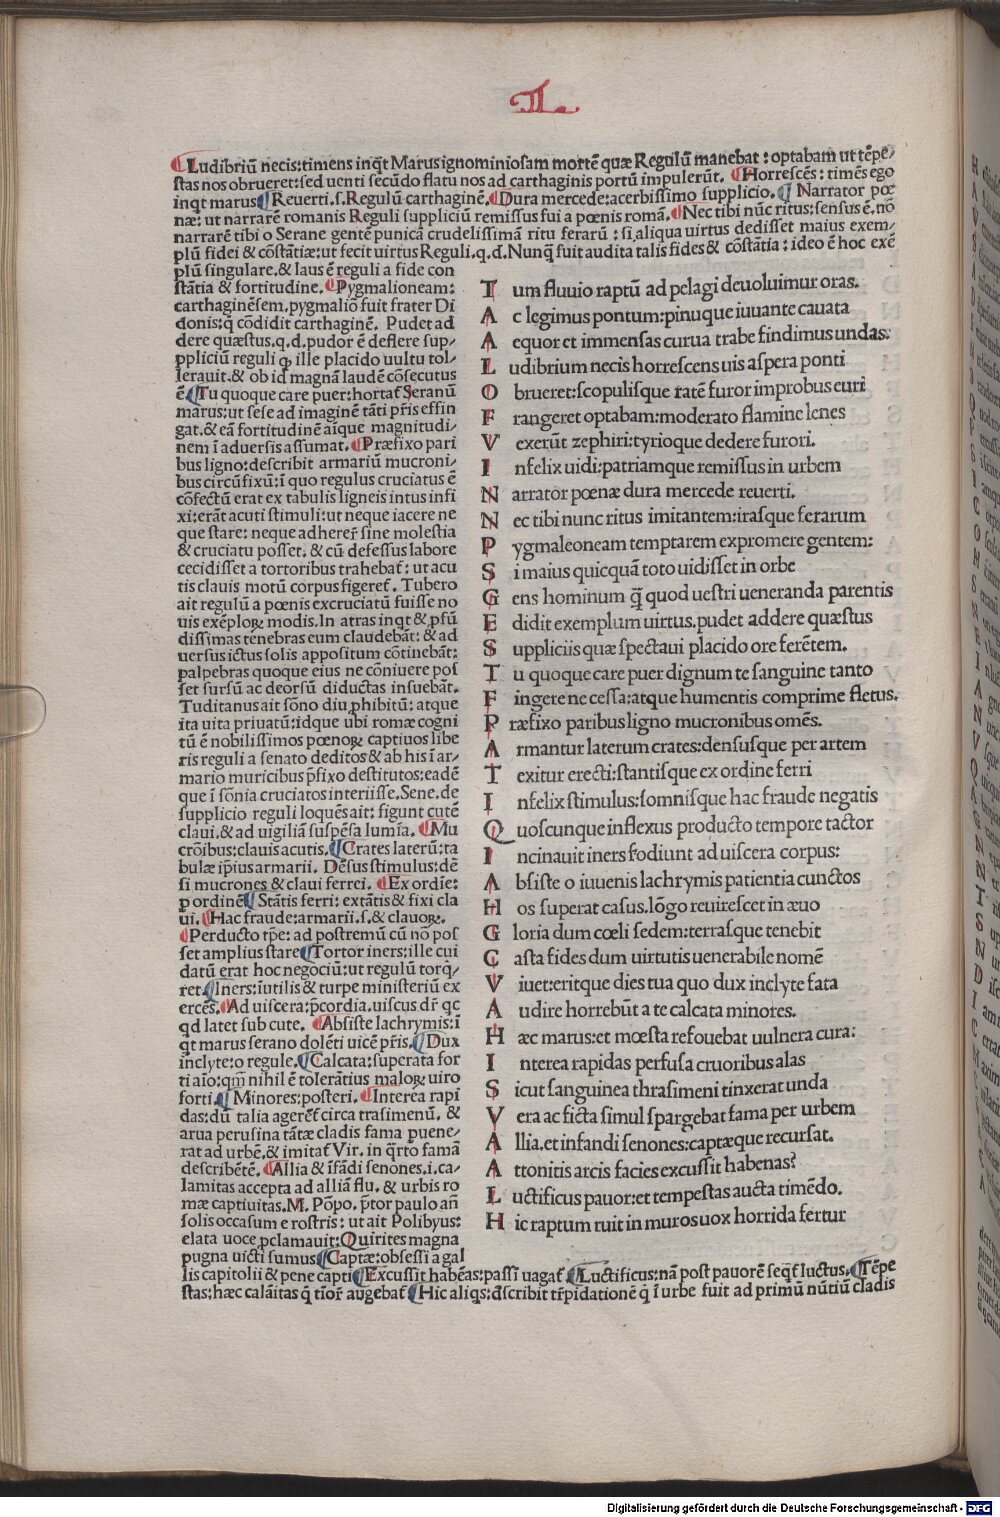 II.
Ludibriū necis:timens inq̄t Marus ignominiosam mortē quæ Regulū manebat : optabam ut tēpe/
stas nos obrueret:sed uenti secūdo flatu nos ad carthaginis portū impulerūt. Horrescēs : timēs ego
inqt marus Reuerti.s.Regulū carthaginē. Dura mercede:acerbissimo supplicio. Narrator pœ
næ: ut narrarē romanis Reguli suppliciū remissus fui a pœnis romā. Nec tibi nūc ritus:sensus ē.nō
narrarē tibi o Serane gentē punicā crudelissimā ritu ferarū : si aliqua uirtus dedisset maius exem/
plū fidei & cōstātiæ:ut fecit uirtus Reguli.q.d.Nunq̄ fuit audita talis fides & cōstātia : ideo ē hoc exē
plū singulare.& laus ē reguli a fide con
stātia & fortitudine. Pygmalioneam:
carthaginēsem.pygmaliō fuit frater Di
donis:q̄ cōdidit carthaginē. Pudet ad
dere quæstus.q.d.pudor ē deflere sup/
ppliciū reguli q̨ ille placido uultu tol/
lerauit.& ob id magnā laudē cōsecutus
ē. Tu quoque care puer:hortat̄ Seranū
marus:ut sese ad imaginē tāti p̄ris effin
gat.& eā fortitudinē aīque magnitudi/
nem ī aduersis assumat. Præfixo pari
bus ligno:describit armariū mucroni/
bus circūfixū:ī quo regulus cruciatus ē
cōfectū erat ex tabulis ligneis intus infi
xi:erāt acuti stimuli:ut neque iacere ne
que stare: neque adherer̄ sine molestia
& cruciatu posset. & cū defessus labore
cecidisset a tortoribus trahebat̄: ut acu
tis clauis motū corpus figeret̄. Tubero
ait regulū a pœnis excruciatū fuisse no
uis exēploꝝ modis.In atras inqt & p̱fū
dissimas tenebras eum claudebāt: & ad
uersus ictus solis appositum cōtinebāt:
palpebras quoque eius ne cōniuere pos
set sursū ac deorsū diductas insuebāt.
Tuditanus ait sōno diu p̱hibitū: atque
ita uita priuatū:idque ubi romæ cogni
tū ē nobilissimos pœnoꝝ captiuos libe
ris reguli a senato deditos & ab his ī ar/
mario muricibus p̄fixo destitutos:eadē
que ī sōnia cruciatos interiisse.Sene.de
supplicio reguli loquēs ait: figunt cutē
claui.& ad uigiliā suspēsa lumīa. Mu
crōibus:clauis acutis. Crates laterū:ta
bulæ ip̄ius armarii. Dēsus stimulus:dē
si mucrones & claui ferrei. Ex ordīe:
p ordinē Stātis ferri: extātis & fixi cla
ui. Hac fraude:armarii.s.& clauoꝝ.
Perducto tp̄e: ad postremū cū nō pos
set amplius stare Tortor iners:ille cui
datū erat hoc negociū:ut regulū torq̄/
ret Iners:īutilis & turpe ministeriū ex
ercēs. Ad uiscera:p̄cordia.uiscus dr̄ qc
qd latet sub cute. Absiste lachrymis:i
qt marus serano dolēti uicē p̄ris. Dux
inclyte:o regule. Calcata:superata for
ti aīo:qm̄ nihil ē tolerātius maloꝝ uiro
forti. Minores:posteri. Interea rapi
das:dū talia agerēt̄ circa trasimenū. &
arua perusina tātæ cladis fama puene/
rat ad urbē.& imitat̄ Vir. in q̄rto famā
describētē. Allia & īfādi senones.i.ca/
lamitas accepta ad alliā flu. & urbis ro
mæ captiuitas.M. Pōpo.p̄tor paulo añ
solis occasum e rostris: ut ait Polibyus:
elata uoce p̱clamauit:Quirites magna
pugna uicti sumus Captæ:obsessi a gal
lis capitolii & pene capti Excussit habēas:passī uagat̄ Lucti ficus:nā post pauorē seq̄t̄ luctus. Tēpe
stas:hæc calāitas q̄ tīor̄ augebat̄ Hic aliqs:dscribit tr̄pidationē q̄ ī urbe fuit ad primū nūtiū cladis
T um fluuio raptū ad pelagi deuoluimur oras.
A c legimus pontum:pinuque iuuante cauata
A equor et immensas curua trabe findimus undas.
L udibrium necis horrescens uis aspera ponti
O brueret:scopulisque ratē furor improbus euri
F rangeret optabam:moderato flamine lenes
V exerūt zephiri:tyrioque dedere furori.
I nfelix uidi:patriamque remissus in urbem
N arrator pœnæ dura mercede reuerti.
N ec tibi nunc ritus imitantem:irasque ferarum
P ygmaleoneam temptarem expromere gentem:
S i maius quicquā toto uidisset in orbe
G ens hominum q̄ quod uestri ueneranda parentis
E didit exemplum uirtus.pudet addere quæstus
S uppliciis quæ spectaui placido ore ferētem.
T u quoque care puer dignum te sanguine tanto
F ingere ne cessa:atque humentis comprime fletus.
P ræfixo paribus ligno mucronibus omēs.
A rmantur laterum crates:densusque per artem
T exitur erecti:stantisque ex ordine ferri
I nfelix stimulus:somnisque hac fraude negatis
Q uoscunque inflexus producto tempore tactor
I ncinauit iners fodiunt ad uiscera corpus:
A bsiste o iuuenis lachrymis patientia cunctos
H os superat casus.lōgo reuirescet in æuo
G loria dum cœli sedem:terrasque tenebit
C asta fides dum uirtutis uenerabile nomē
V iuet:eritque dies tua quo dux inclyte fata
A udire horrebūt a te calcata minores.
H æc marus:et mœsta refouebat uulnera cura:
I nterea rapidas perfusa cruoribus alas
S icut sanguinea thrasimeni tinxerat unda
V era ac ficta simul spargebat fama per urbem
A llia.et infandi senones:captæque recursat.
A ttonitis arcis facies excussit habenas?
L uctificus pauor:et tempestas aucta timēdo.
H ic raptum ruit in muros uox horrida fertur
Digitalisierung gefördert durch die Deutsche Forschungsgemeinschaft - DFG